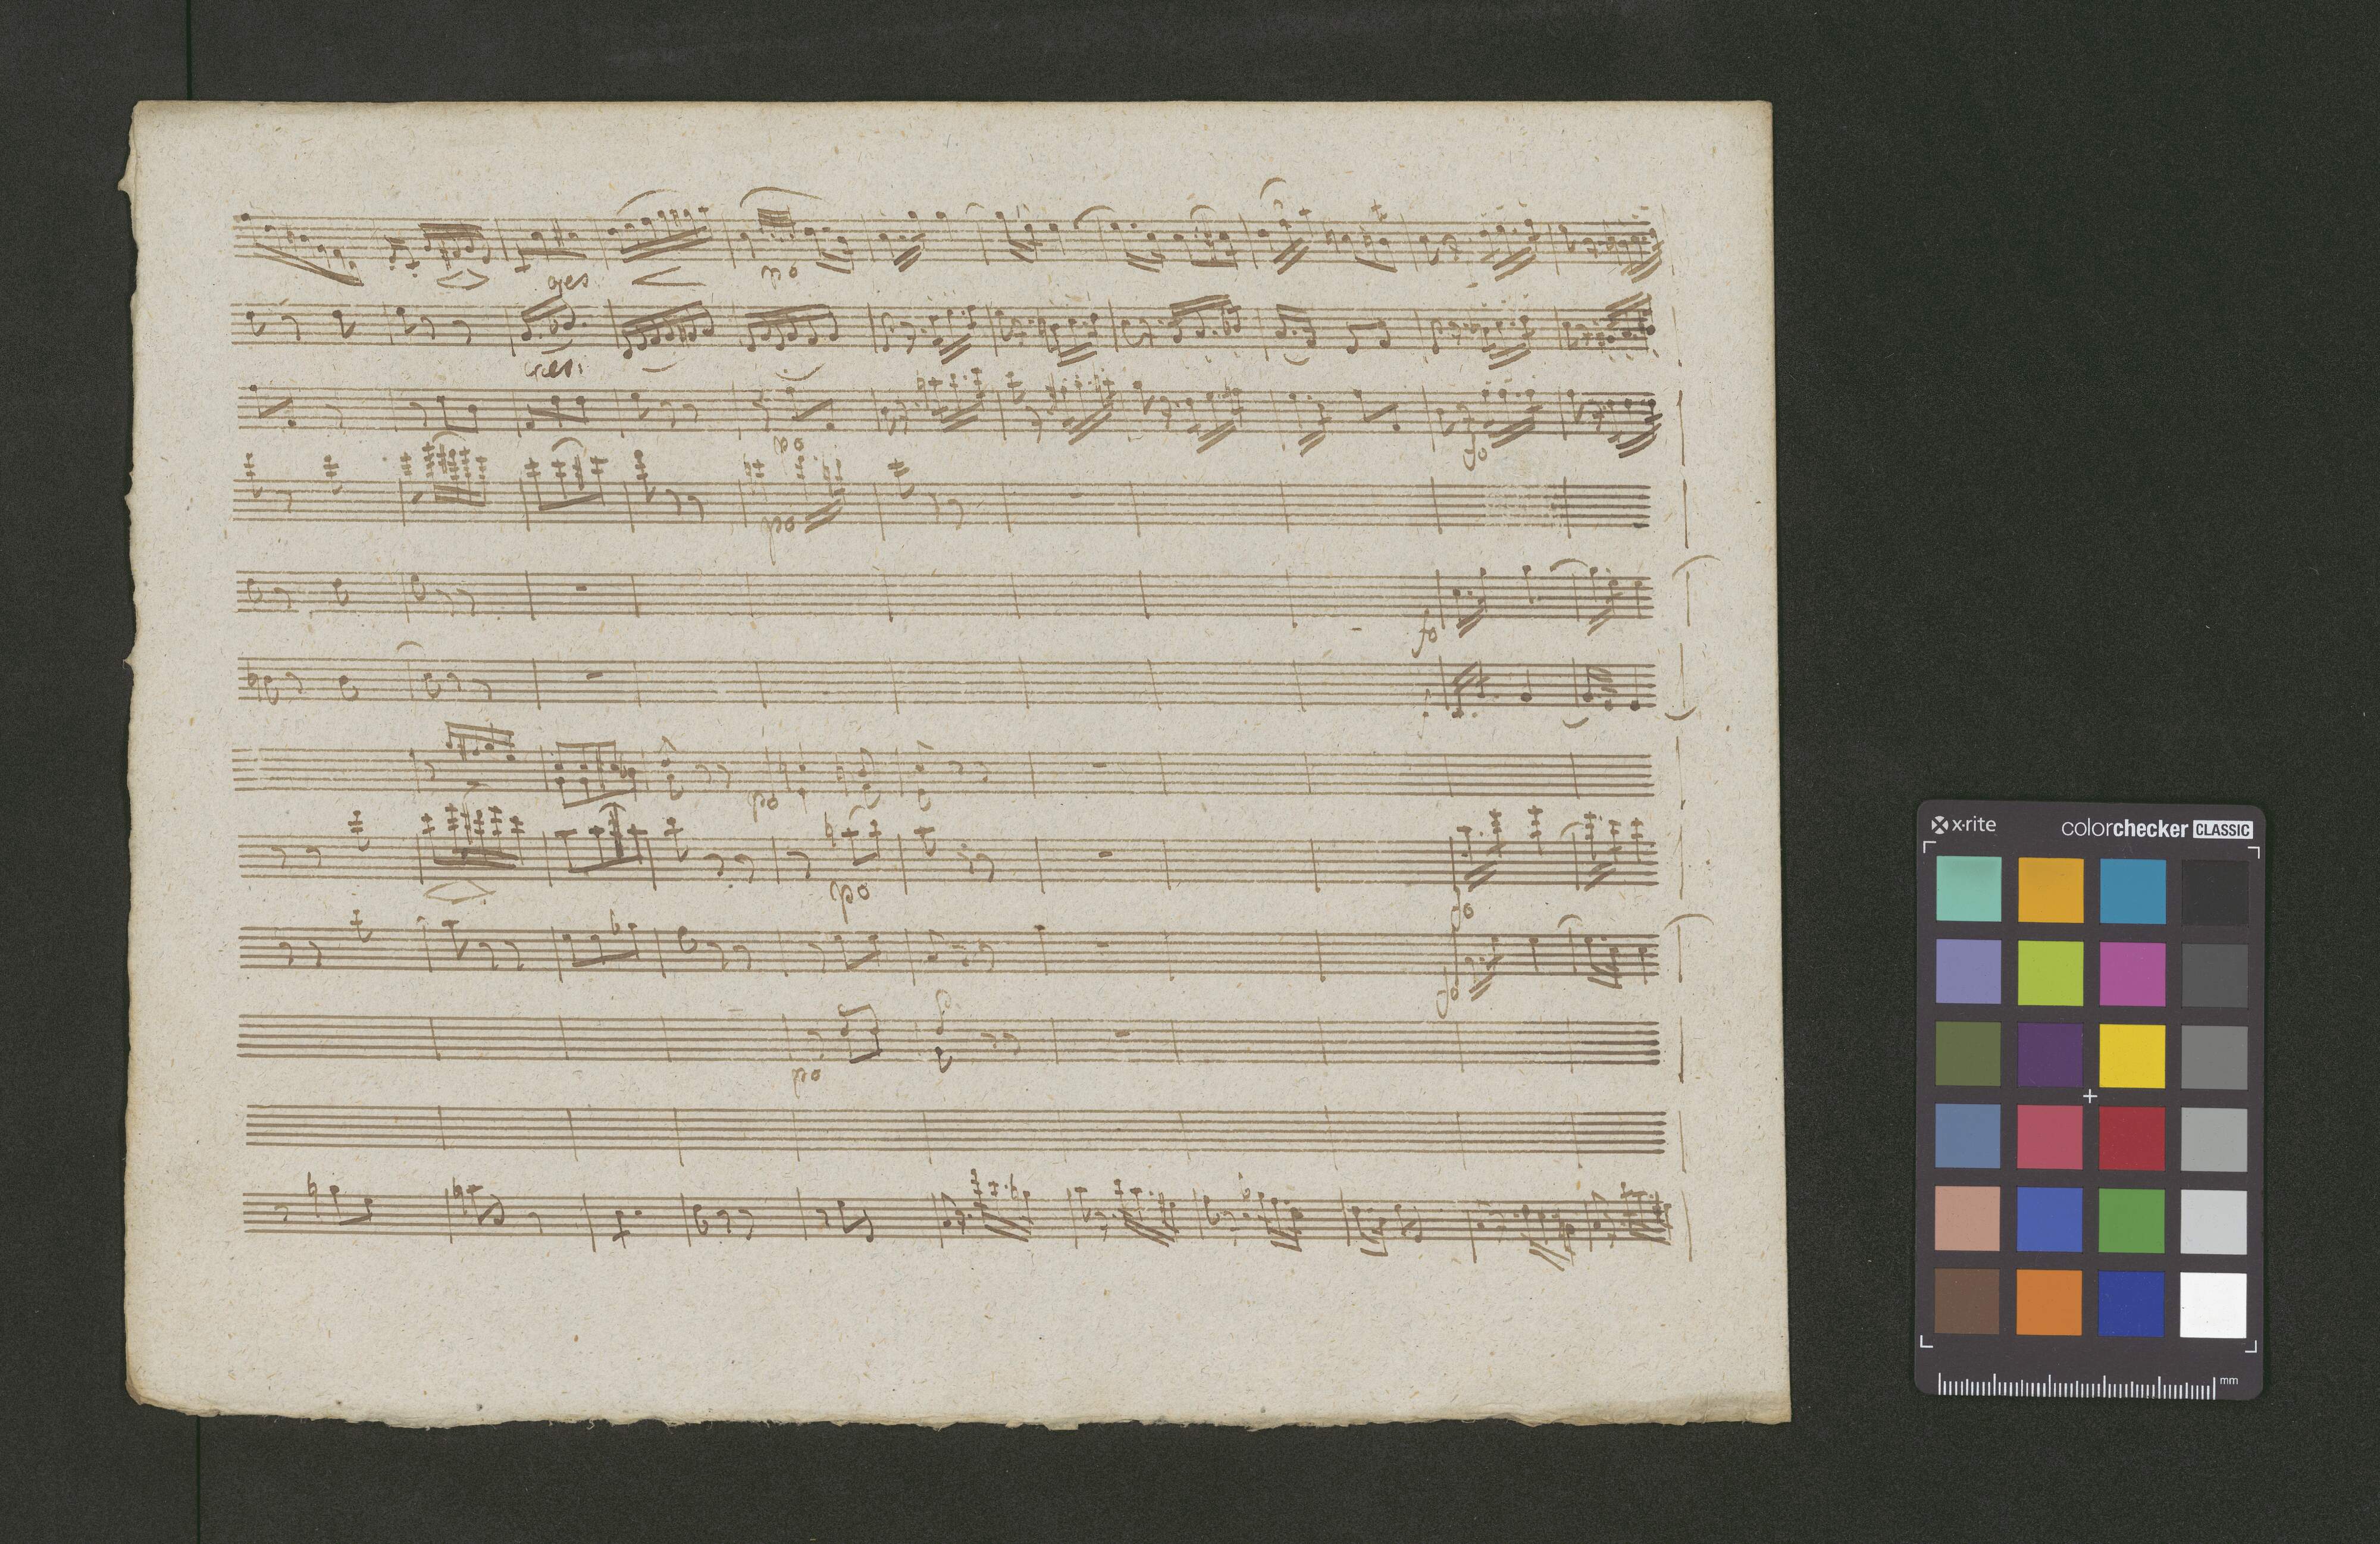 cres
po
cres.
po
fo
po
fo
po
po
fo
fo
po
x-rite
colorchecker CLASSIC
mm